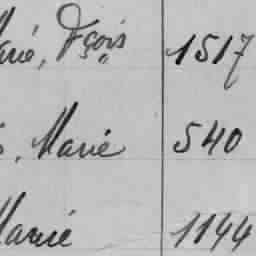 Marié, Fçois 1517
, Marie 540
Marie 1144